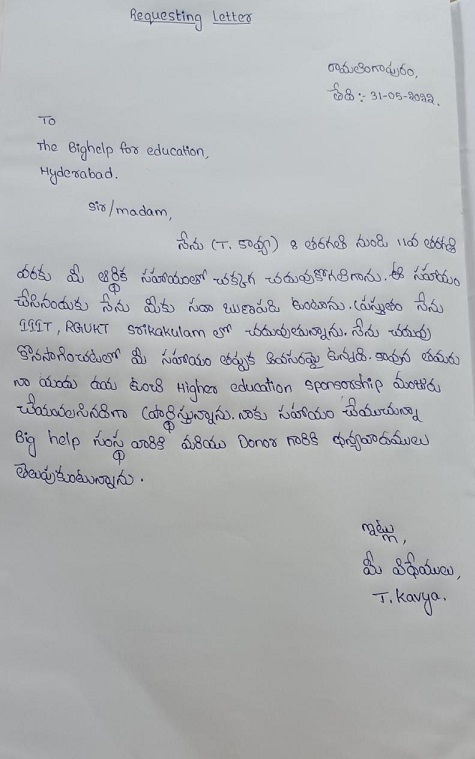 Requesting Letter
రామలింగాపురం,
తేది :- 31-05-2022.
To
The Bighelp for education,
Hyderabad.
Sir/madam,
నేను (T. కావ్య) 8 తరగతి నుండి 11వ తరగతి
వరకు మీ ఆర్థిక సహాయంలో చక్కగ చదువుకోగలిగాను. ఈ సహాయం
చేసినందుకు నేను మీకు సదా ఋణపడి ఉంటాను. ప్రస్తుతం నేను
IIIT, RGUKT Srikakulam లో చదువుతున్నాను. నేను చదువు
కొనసాగించడంలో మీ సహాయం తప్పక అవసరమై ఉన్నది. కావున తమరు
నా యందు దయ ఉంచి Higher education sponsorship మంజూరు
చేయవలసినదిగా ప్రార్థిస్తున్నాను. నాకు సహాయం చేయుచున్న
Big help సంస్థ వారికి మరియు Donor గారికి ధన్యవాదములు
తెలుపుకుంటున్నాను.
ఇట్లు,
మీ విధేయులు,
T. Kavya.